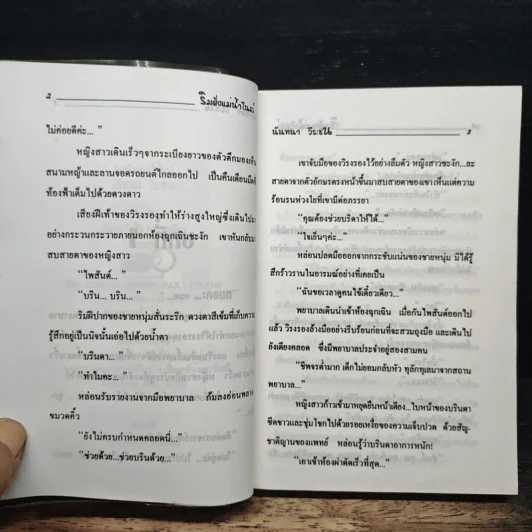 ๒ ริมฝั่งแม่น้ำไนล์
ไม่ค่อยดีค่ะ... "
หญิงสาวเดินเร็วๆจากระเบียงยาวของตัวตึกมองเห็น
สนามหญ้าและลานจอดรถยนต์ไกลออกไป เป็นคืนเดือนมืดที่
ท้องฟ้าเต็มไปด้วยดวงดาว
เสียงฝีเท้าของวิรงรองทำให้ร่างสูงใหญ่ซึ่งเดินไปมา
อย่างกระวนกระวายภายนอกห้องฉุกเฉินชะงัก เขาหันกลับมา
สบสายตาของหญิงสาว
"ไพสันต์..."
"บริน... บริน... "
ริมฝีปากของชายหนุ่มสั่นระริก ดวงตาสีเข้มที่เก็บความ
รู้สึกอยู่เป็นนิจนั้นเอ่อไปด้วยน้ำตา
"บรินดา... "
"ทำไมคะ... "
หล่อนรับรายงานจากมือพยาบาล ก้มลงอ่านพลาง
ขมวดคิ้ว
"ยังไม่ครบกำหนดคลอดนี่..."
"ช่วยด้วย...ช่วยบรินด้วย..."
นันทนา วีระชน ๓
เขาจับมือของวิรงรองไว้อย่างลืมตัว หญิงสาวชะงัก...ละ
สายตาจากตัวอักษรตรงหน้าขึ้นมาสบสายตาของเขาเห็นแต่ความ
ร้อนรนห่วงใยที่เขามีต่อภรรยา
"คุณต้องช่วยบรินดาให้ได้..."
"ใจเย็นๆค่ะ..."
หล่อนปลดมือออกจากกระชับแน่นของชายหนุ่ม มิได้รู้
สึกร้าวรานในอารมณ์อย่างที่เคยเป็น
"ฉันขอเวลาดูคนไข้เดี๋ยวเดียว..."
พยาบาลเดินนำเข้าห้องฉุกเฉิน เมื่อกันไพสันต์ออกไป
แล้ว วิรงรองล้างมืออย่างรีบร้อนก่อนที่จะสวมถุงมือ และเดินไป
ยังเตียงคลอด ซึ่งมีพยาบาลประจำอยู่สองสามคน
"ชีพจรต่ำมาก เด็กไม่ยอมกลับหัว ทุลักทุเลมาจากสถาน
พยาบาล..."
หญิงสาวก้าวเข้ามาหยุดยืนหน้าเตียง...ใบหน้าของบรินดา
ซีดขาวและชุ่มโชกไปด้วยรอยเหงื่อของความเจ็บปวด ด้วยสัญ-
ชาติญาณของแพทย์ หล่อนรู้ว่าบรินดาอาการหนัก!
"เอาเข้าห้องผ่าตัดเร็วที่สุด..."